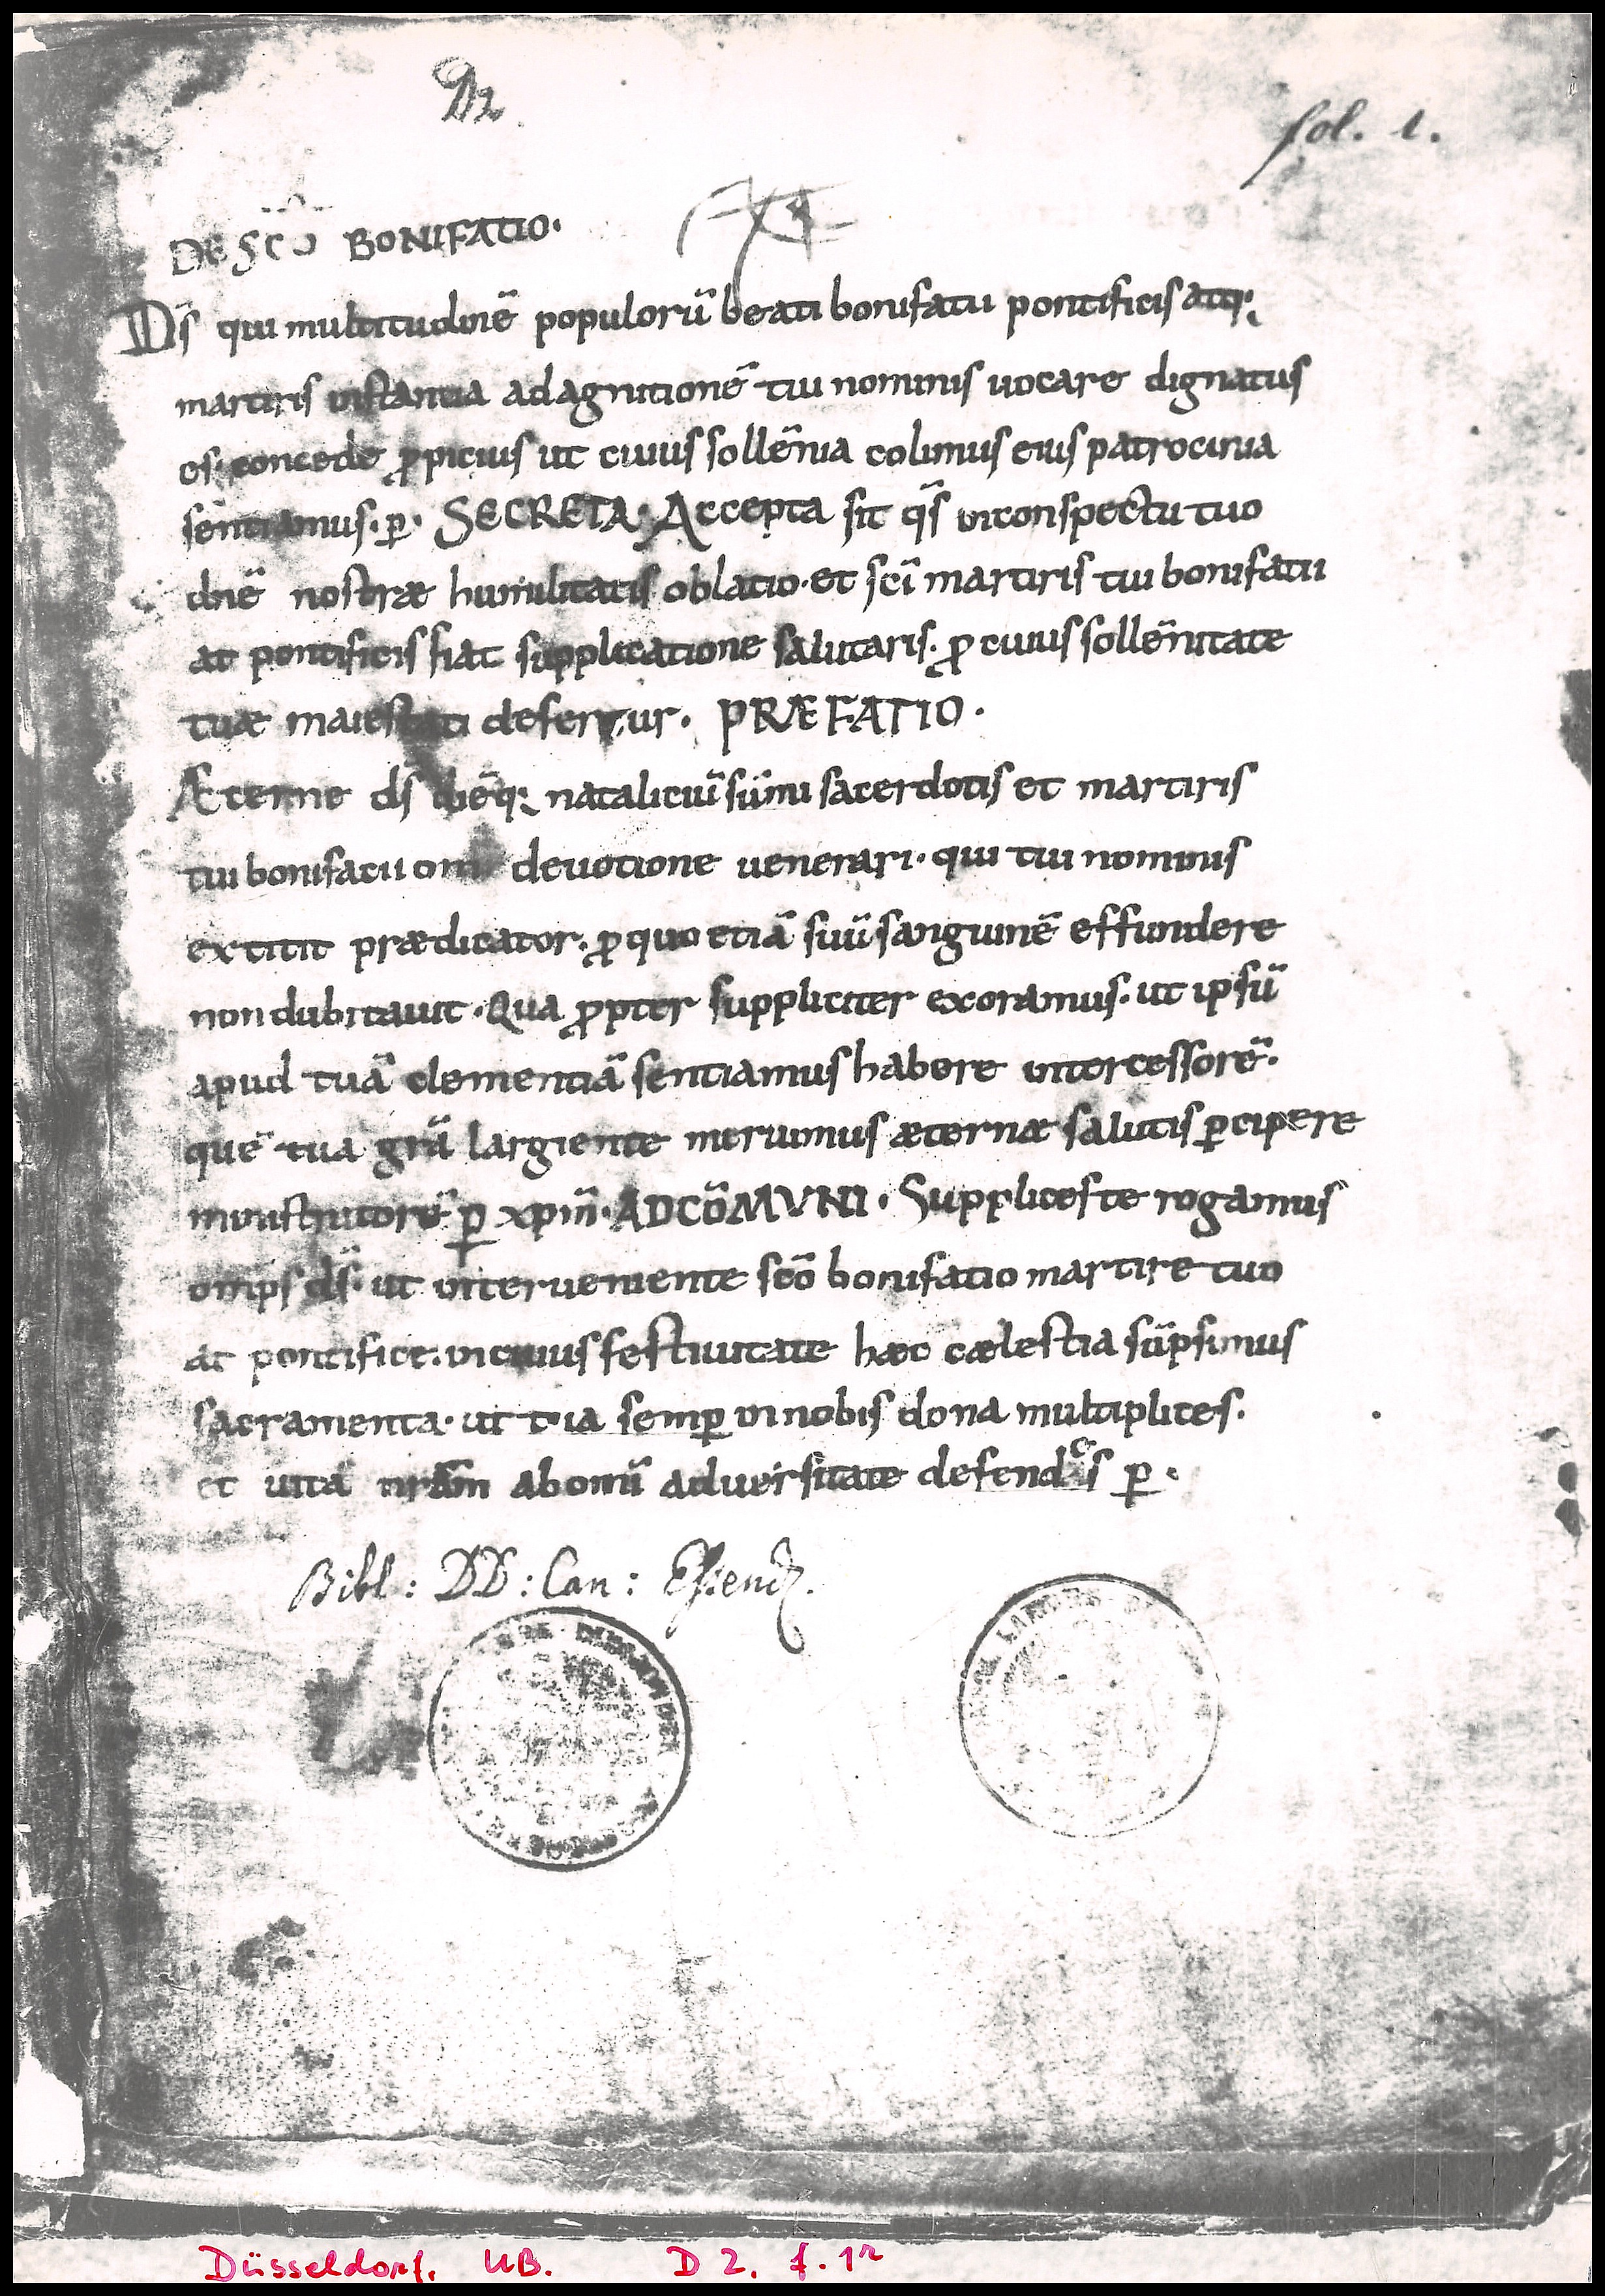 D2
fol. 1.
DE SCO BONIFATIO·
D̄s qui multitudinē populorū beati bonifatii pontificis atq;
martiris instantia ad agnitionē tui nominis uocare dignatus
es· concede ꝓpicius ut cuius sollēnia colimus eius patrocinia
sentiamus· ꝑ· SECRETA· Accepta sit q̄s in conspectu tuo
dn̄e nostræ humilitatis oblatio· et sc̄i martiris tui bonifatii
ac pontificis fiat supplicatione salutaris· ꝓ cuius sollēnitate
tuæ maiestati defertur· PRÆFATIO·
Æterne ds̄ diēq; nataliciū sūmi sacerdotis et martiris
tui bonifacii om̄i deuotione uenerari· qui tui nominis
extitit prædicator· ꝓ quo etiā suū sanguinē effundere
non dubitauit· Qua ꝓpter suppliciter exoramus· ut ipsū
apud tuā clementiā sentiamus habere intercessorē·
quē tua gr̄a largiente meruimus æternæ salutis ꝑcipere
ministratorē ꝑ xpm̄· AD CŌMVNI· Supplices te rogamus
omps ds̄· ut interueniente sc̄o bonifatio martire tuo
ac pontifice· in cuius festiuitate hæc cælestia sūpsimus
sacramenta· ut tua semꝑ in nobis dona multiplices·
et uitā nrām ab omī aduersitate defendas ꝑ·
Bibl: DD: Can: Essend.
Düsseldorf, UB. D 2, f. 1r